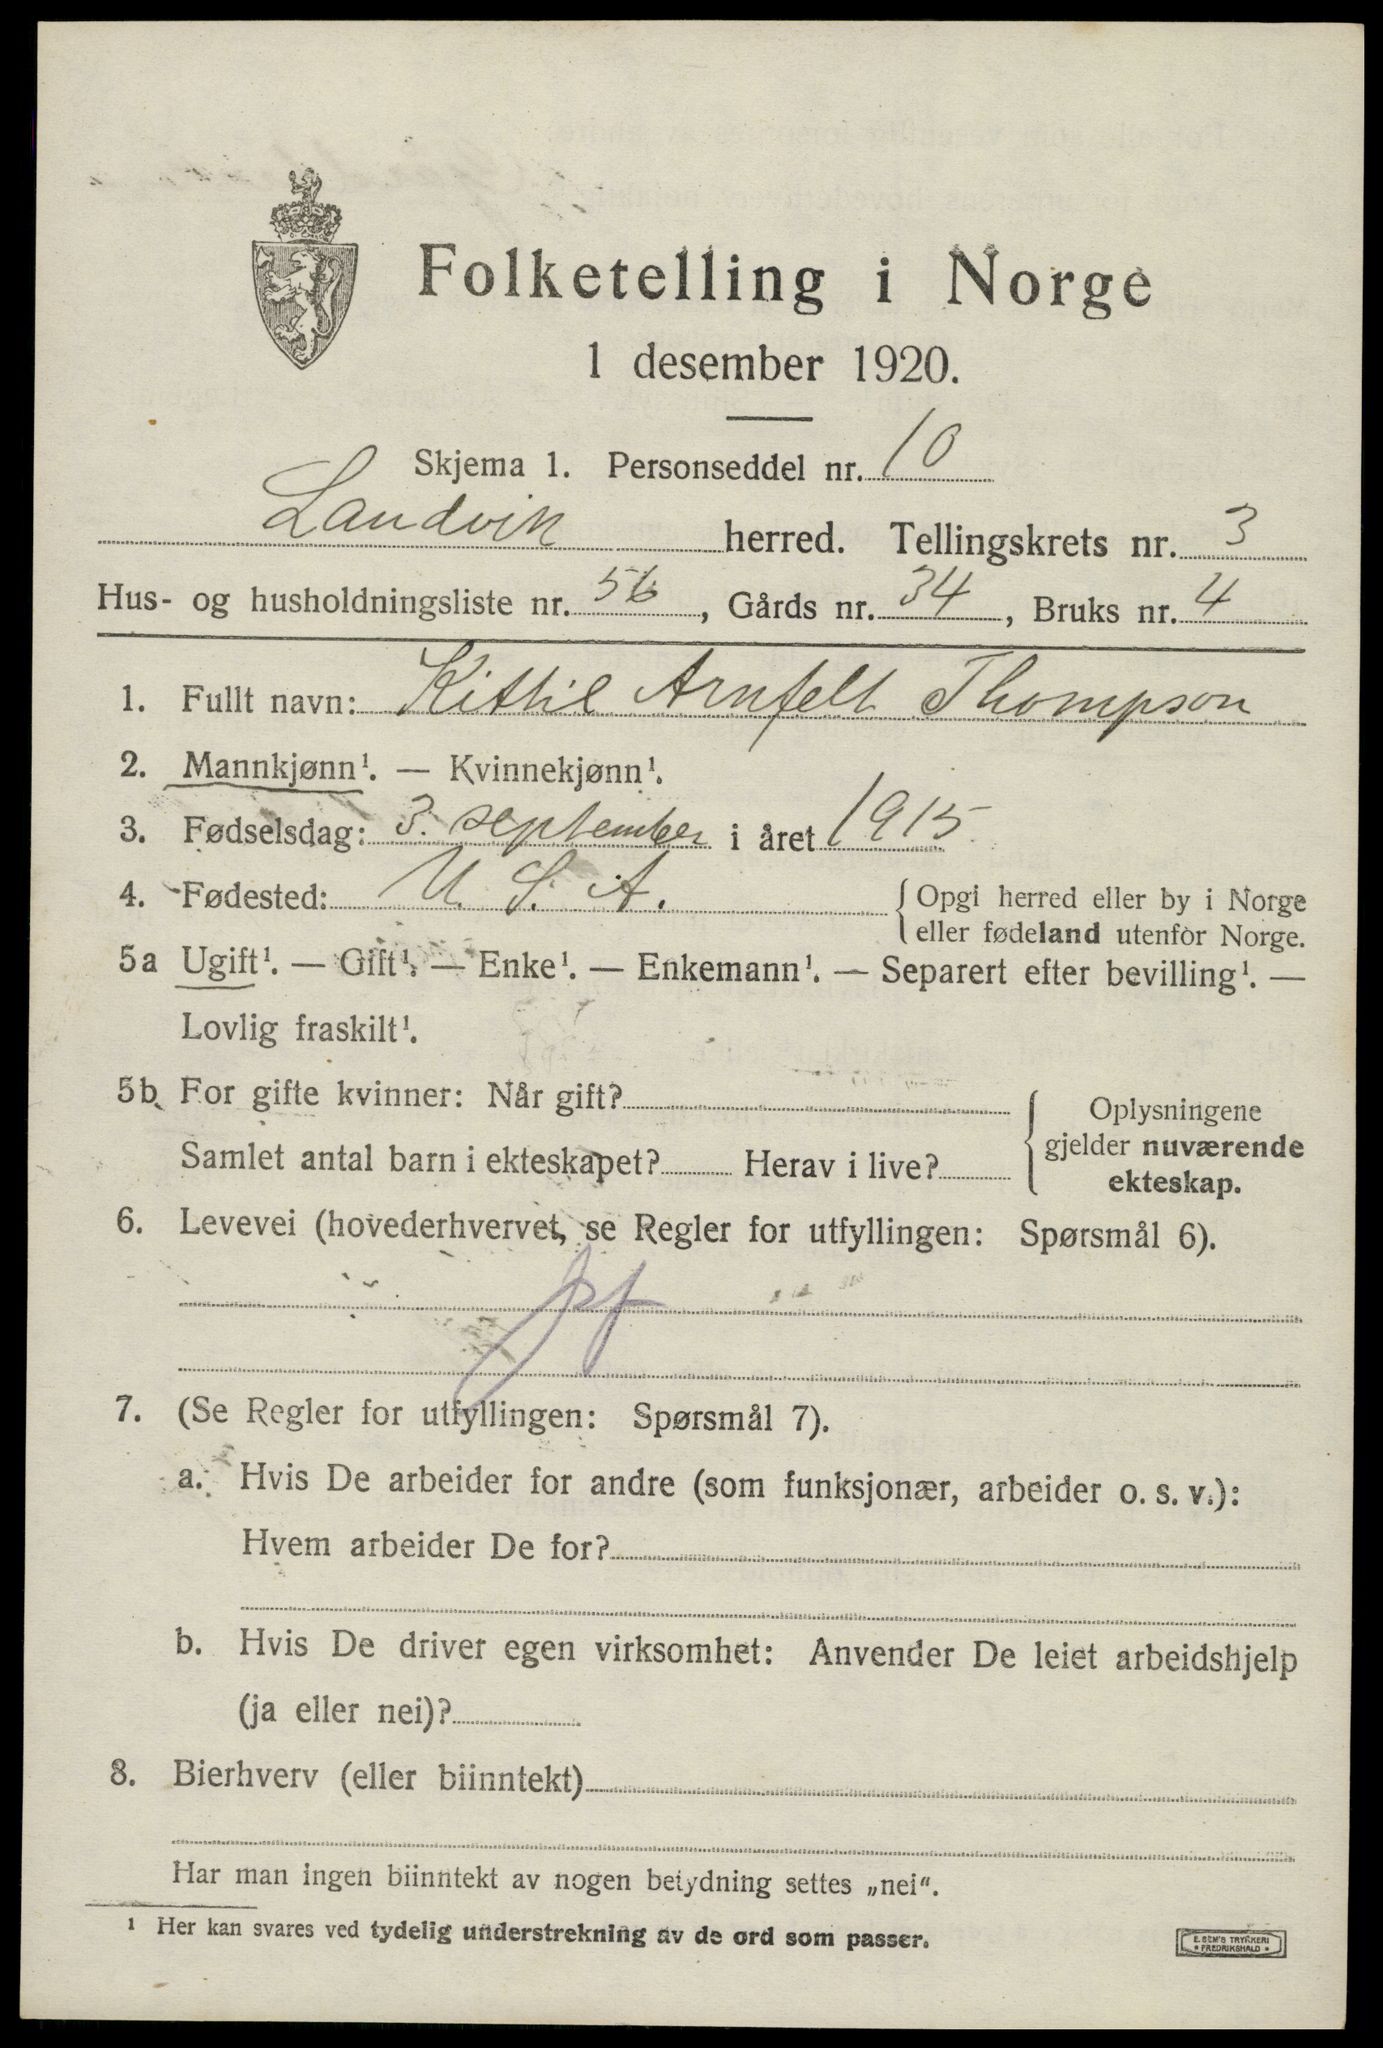 Folketelling i Norge
1 desember 1920.
Skjema 1. Personseddel nr. 10
Landvik herred. Tellingskrets nr. 3
Hus- og husholdningsliste nr. 56, Gårds nr. 34, Bruks nr. 4
1. Fullt navn: Kittil Arnfelt Thompson
2. Mannkjønn¹. — Kvinnekjønn¹.
3. Fødselsdag: 3. september i året 1915
4. Fødested: U. S. A. { Opgi herred eller by i Norge
eller fødeland utenfor Norge.
5a Ugift¹. — Gift¹. — Enke¹. — Enkemann¹. — Separert efter bevilling¹. —
Lovlig fraskilt¹.
5b For gifte kvinner: Når gift?
Samlet antal barn i ekteskapet? Herav i live?
{ Oplysningene
gjelder nuværende
ekteskap.
6. Levevei (hovederhvervet, se Regler for utfyllingen: Spørsmål 6).
7. (Se Regler for utfyllingen: Spørsmål 7).
a. Hvis De arbeider for andre (som funksjonær, arbeider o. s. v.):
Hvem arbeider De for?
b. Hvis De driver egen virksomhet: Anvender De leiet arbeidshjelp
(ja eller nei)?
8. Bierhverv (eller biinntekt)
Har man ingen biinntekt av nogen betydning settes „nei“.
¹ Her kan svares ved tydelig understrekning av de ord som passer.
E. SEM'S TRYKKERI
* FREDRIKSHALD *